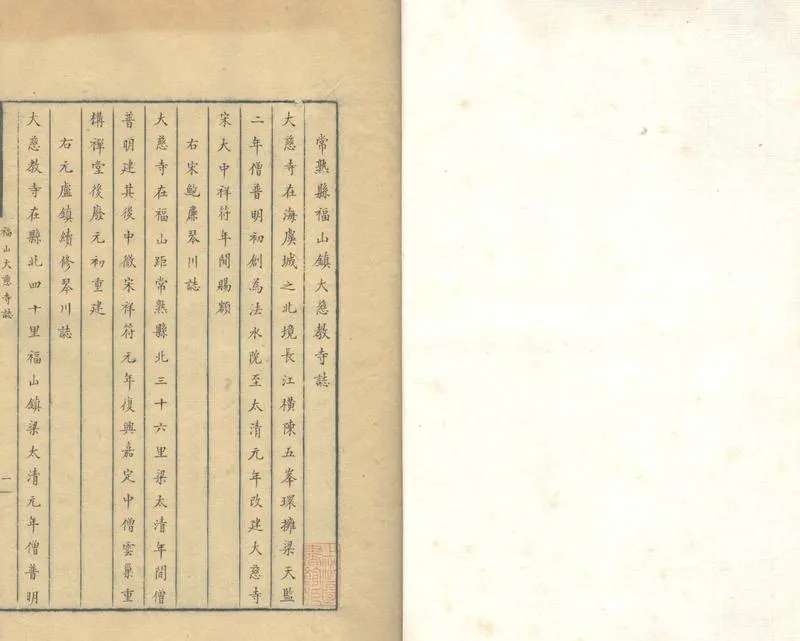 常熟縣福山鎮大慈教寺誌
大慈寺在海虞城之北境長江橫陳五峯環擁梁天監
二年僧普明初創為法水院至太清元年改建大慈寺
宋大中祥符年間賜額
右宋鮑廉琴川誌
大慈寺在福山距常熟縣北三十六里梁太清年間僧
普明建其後中微宋祥符元年復興嘉定中僧雲巢重
構禪堂後廢元初重建
右元盧鎮續修琴川誌
大慈教寺在縣北四十里福山鎮梁太清元年僧普明
福山大慈寺誌
一